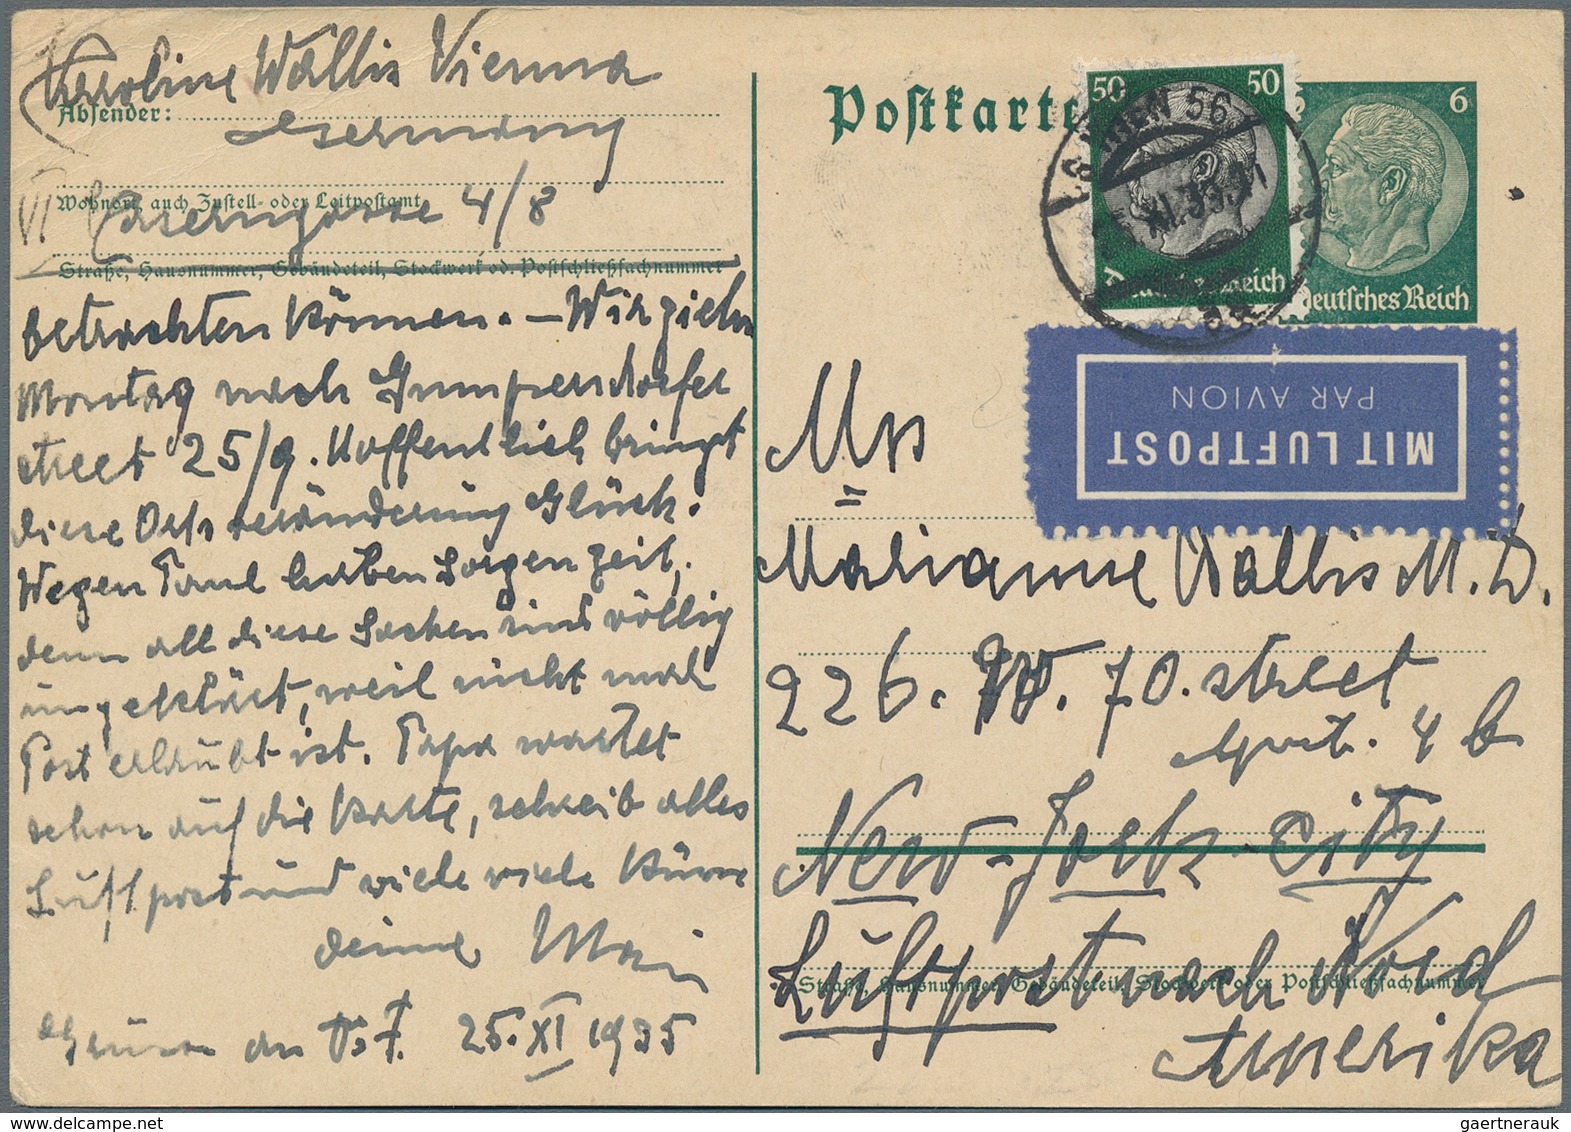 Karoline Wallis Vienna
Absender:
Germany
Wohnort, auch Zustell- oder Leitpostamt
VI Caserngasse 4/8
Straße, Hausnummer, Gebäudeteil, Stockwerk od. Postschließfachnummer
betrachten können. – Wir ziehn
Montag nach Gumpendorfer
street 25/9. Hoffentlich bringt
diese Ortsveränderung Glück.
Wegen Paul haben Sorgen Zeit,
denn all diese Sachen sind völlig
ungeklärt, weil nicht mal
Post erlaubt ist. Papa wartet
schon auf die Karte, schreib alles
Luftpost und viele viele Küsse
deine
25. XI 1935
Postkarte
50 50
Deutsches Reich
6
Deutsches Reich
WIEN 56
MIT LUFTPOST
PAR AVION
Mss
Marianne Wallis M. D.
226. W. 70. street
4 b
New-York-City
Luftpost nach Nord
Straße, Hausnummer, Gebäudeteil, Stockwerk oder Postschließfachnummer
Amerika
gaertnerauk